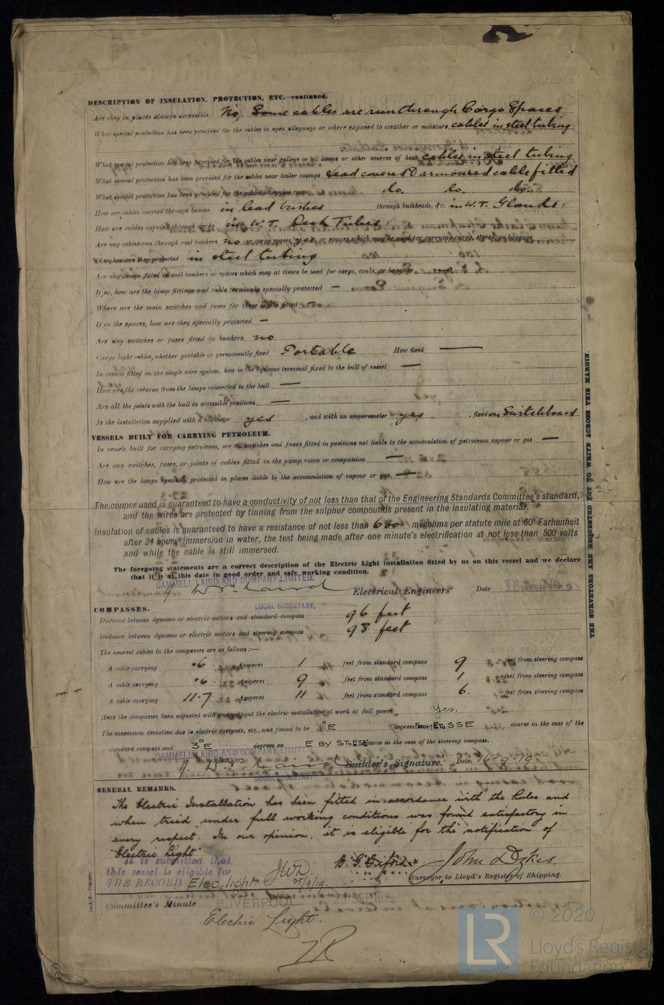 DESCRIPTION OF INSULATION, PROTECTION, ETC.—continued.
Are they in places always accessible No, Some cables are run through Cargo Spaces
What special protection has been provided for the cables in open alleyways or where exposed to weather or moisture cables in steel tubing
What special protection has been provided for the cables near galleys or oil lamps or other sources of heat cables in steel tubing
What special protection has been provided for the cables near boiler casings Lead covered & armoured cable fitted
What special protection has been provided for the cables in engine room do. do. do.
How are cables carried through beams in lead bushes through bulkheads, &c. in W.T. Glands
How are cables carried through decks in W.T. Deck Tubes
Are any cables run through coal bunkers no or cargo spaces yes or spaces which may be used for carrying cargo, stores, or baggage
If so, how are they protected in steel tubing
Are any lamps fitted in coal bunkers or spaces which may at times be used for cargo, coals, or baggage no
If so, how are the lamp fittings and cable terminals specially protected —
Where are the main switches and fuses for these lights fitted —
If in the spaces, how are they specially protected —
Are any switches or fuses fitted in bunkers no
Cargo light cables, whether portable or permanently fixed Portable How fixed —
In vessels fitted on the single wire system, how is the dynamo terminal fixed to the hull of vessel —
How are the returns from the lamps connected to the hull —
Are all the joints with the hull in accessible positions —
Is the installation supplied with a voltmeter yes, and with an amperemeter yes, fixed on Switchboard
VESSELS BUILT FOR CARRYING PETROLEUM.
In vessels built for carrying petroleum, are all switches and fuses fitted in positions not liable to the accumulation of petroleum vapour or gas —
Are any switches, fuses, or joints of cables fitted in the pump room or companion —
How are the lamps specially protected in places liable to the accumulation of vapour or gas —
The copper used is guaranteed to have a conductivity of not less than that of the Engineering Standards Committee's standard,
and the wires are protected by tinning from the sulphur compounds present in the insulating material.
Insulation of cables is guaranteed to have a resistance of not less than 600 megohms per statute mile at 60° Farhenheit
after 24 hours immersion in water, the test being made after one minute's electrification at not less than 500 volts
and while the cable is still immersed.
The foregoing statements are a correct description of the Electric Light installation fitted by us on this vessel and we declare
that it is at this date in good order and safe working condition.
CAMMELL LAIRD AND COMPANY LIMITED.
Electrical Engineers Date
LOCAL SECRETARY.
COMPASSES.
Distance between dynamo or electric motors and standard compass 96 feet
Distance between dynamo or electric motors and steering compass 98 feet
The nearest cables to the compasses are as follows:—
A cable carrying .6 Amperes 1 feet from standard compass 9 feet from steering compass
A cable carrying .6 Amperes 9 feet from standard compass 1 feet from steering compass
A cable carrying 11.7 Amperes 11 feet from standard compass 6. feet from steering compass
Have the compasses been adjusted with and without the electric installation at work at full power Yes.
The maximum deviation due to electric currents, etc., was found to be E degrees on SSE course in the case of the
standard compass and 3° E degrees on E BY S course in the case of the steering compass.
CAMMELL LAIRD AND COMPANY LIMITED
Builder's Signature. Date
GENERAL REMARKS.
The Electric Installation has been fitted in accordance with the Rules and
when tried under full working conditions was found satisfactory in
every respect. In our opinion, it is eligible for the notification of
"Electric Light"
It is submitted that
this vessel is eligible for
THE RECORD Elec. light JWD 25/9/19.
John Dykes.
Surveyor to Lloyd's Register of Shipping.
Committee's Minute LIVERPOOL
Electric Light.
LR
THE SURVEYORS ARE REQUESTED NOT TO WRITE ACROSS THE MARGIN
LR
© 2020
Lloyd's Register
Foundation